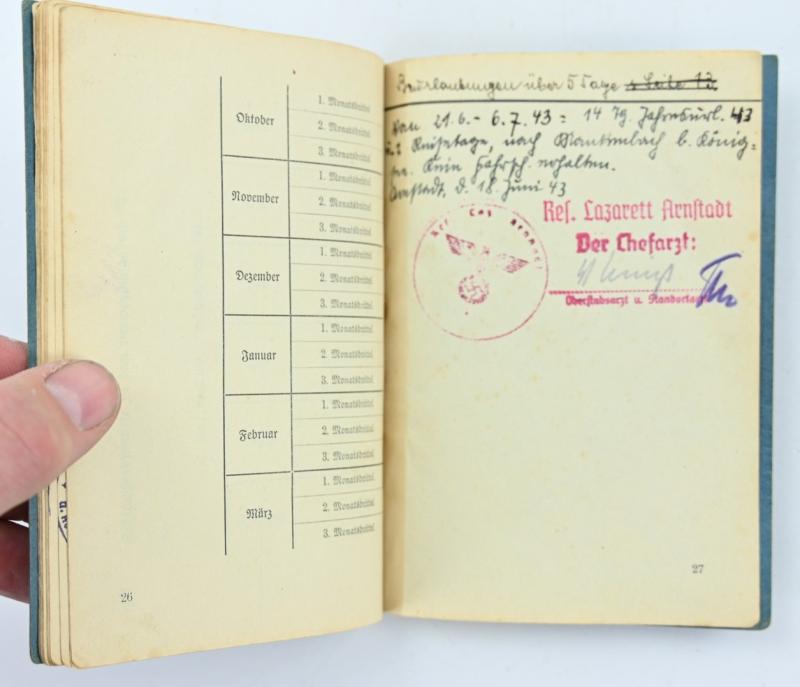 Oktober
1. Monatsdrittel
2. Monatsdrittel
3. Monatsdrittel
November
1. Monatsdrittel
2. Monatsdrittel
3. Monatsdrittel
Dezember
1. Monatsdrittel
2. Monatsdrittel
3. Monatsdrittel
Januar
1. Monatsdrittel
2. Monatsdrittel
3. Monatsdrittel
Februar
1. Monatsdrittel
2. Monatsdrittel
3. Monatsdrittel
März
1. Monatsdrittel
2. Monatsdrittel
3. Monatsdrittel
26
Beurlaubungen über 5 Tage s. Seite 13
Vom 21.6. - 6.7.43 = 14 Tg. Jahresurl. 43
u. 2 Reisetage, nach b. König=
Kein Fahrsch. erhalten.
Arnstadt, d. 18. Juni 43
Res. Lazarett Arnstadt
Der Chefarzt:
Oberstabsarzt u.
27